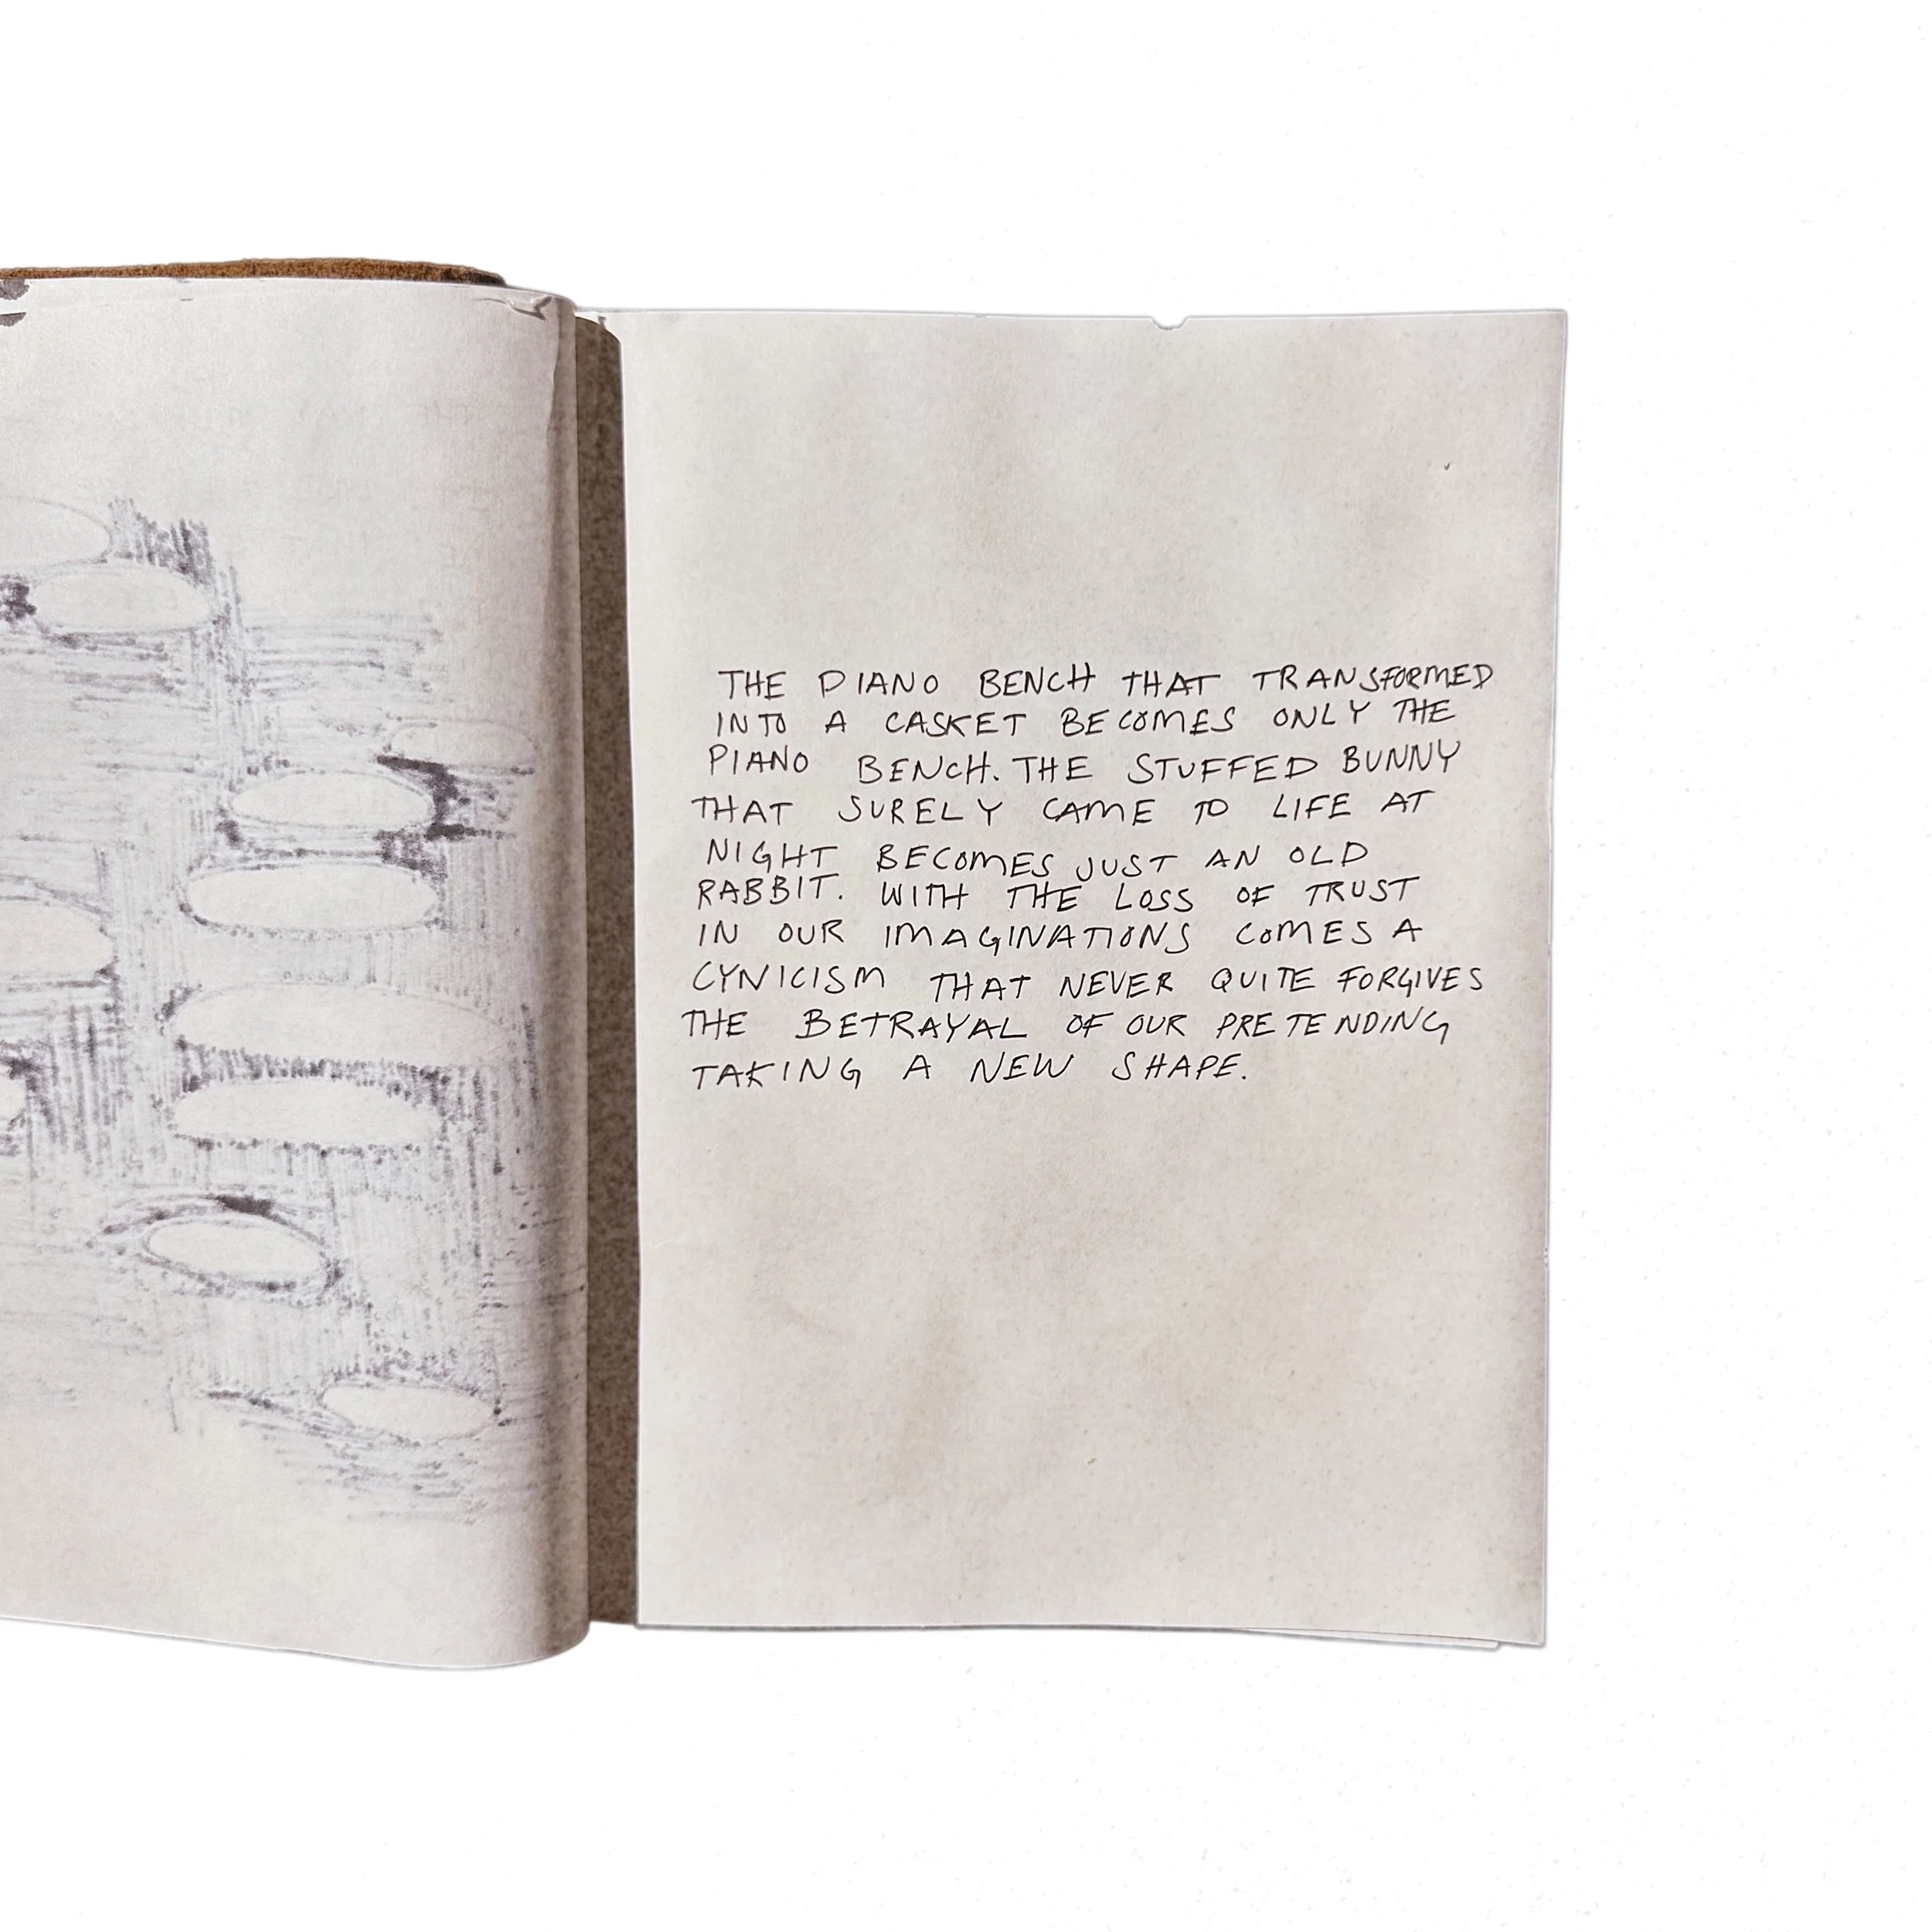 THE PIANO BENCH THAT TRANSFORMED
INTO A CASKET BECOMES ONLY THE
PIANO BENCH. THE STUFFED BUNNY
THAT SURELY CAME TO LIFE AT
NIGHT BECOMES JUST AN OLD
RABBIT. WITH THE LOSS OF TRUST
IN OUR IMAGINATIONS COMES A
CYNICISM THAT NEVER QUITE FORGIVES
THE BETRAYAL OF OUR PRETENDING
TAKING A NEW SHAPE.